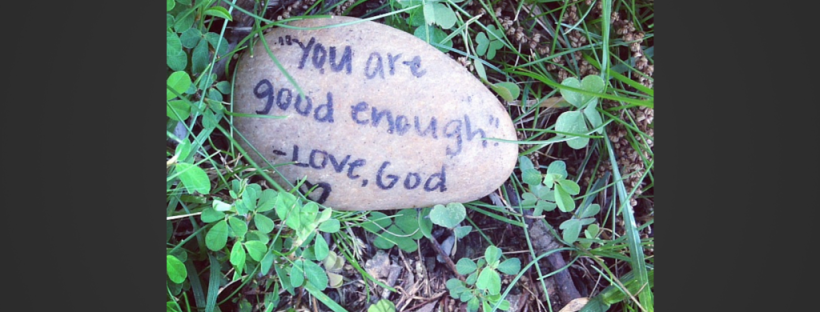 "You are
good enough."
-Love, God